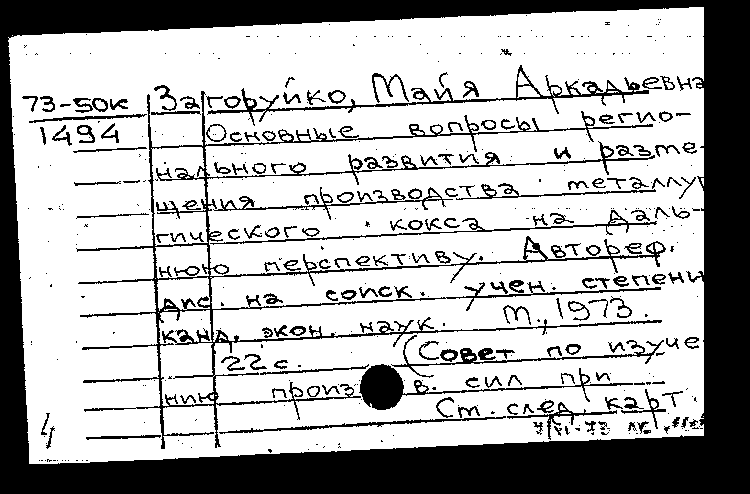 73-50к Загоруйко, Майя Аркадьевна
1494 Основные вопросы регио-
нального развития и разме-
щения производства металлур
гического кокса на даль-
нюю перспективу. Автореф.
дис. на соиск. учен. степени
канд. экон. наук. М., 1973.
22 с. (Совет по изуче
нию произв. сил при
См. след. карт.
4